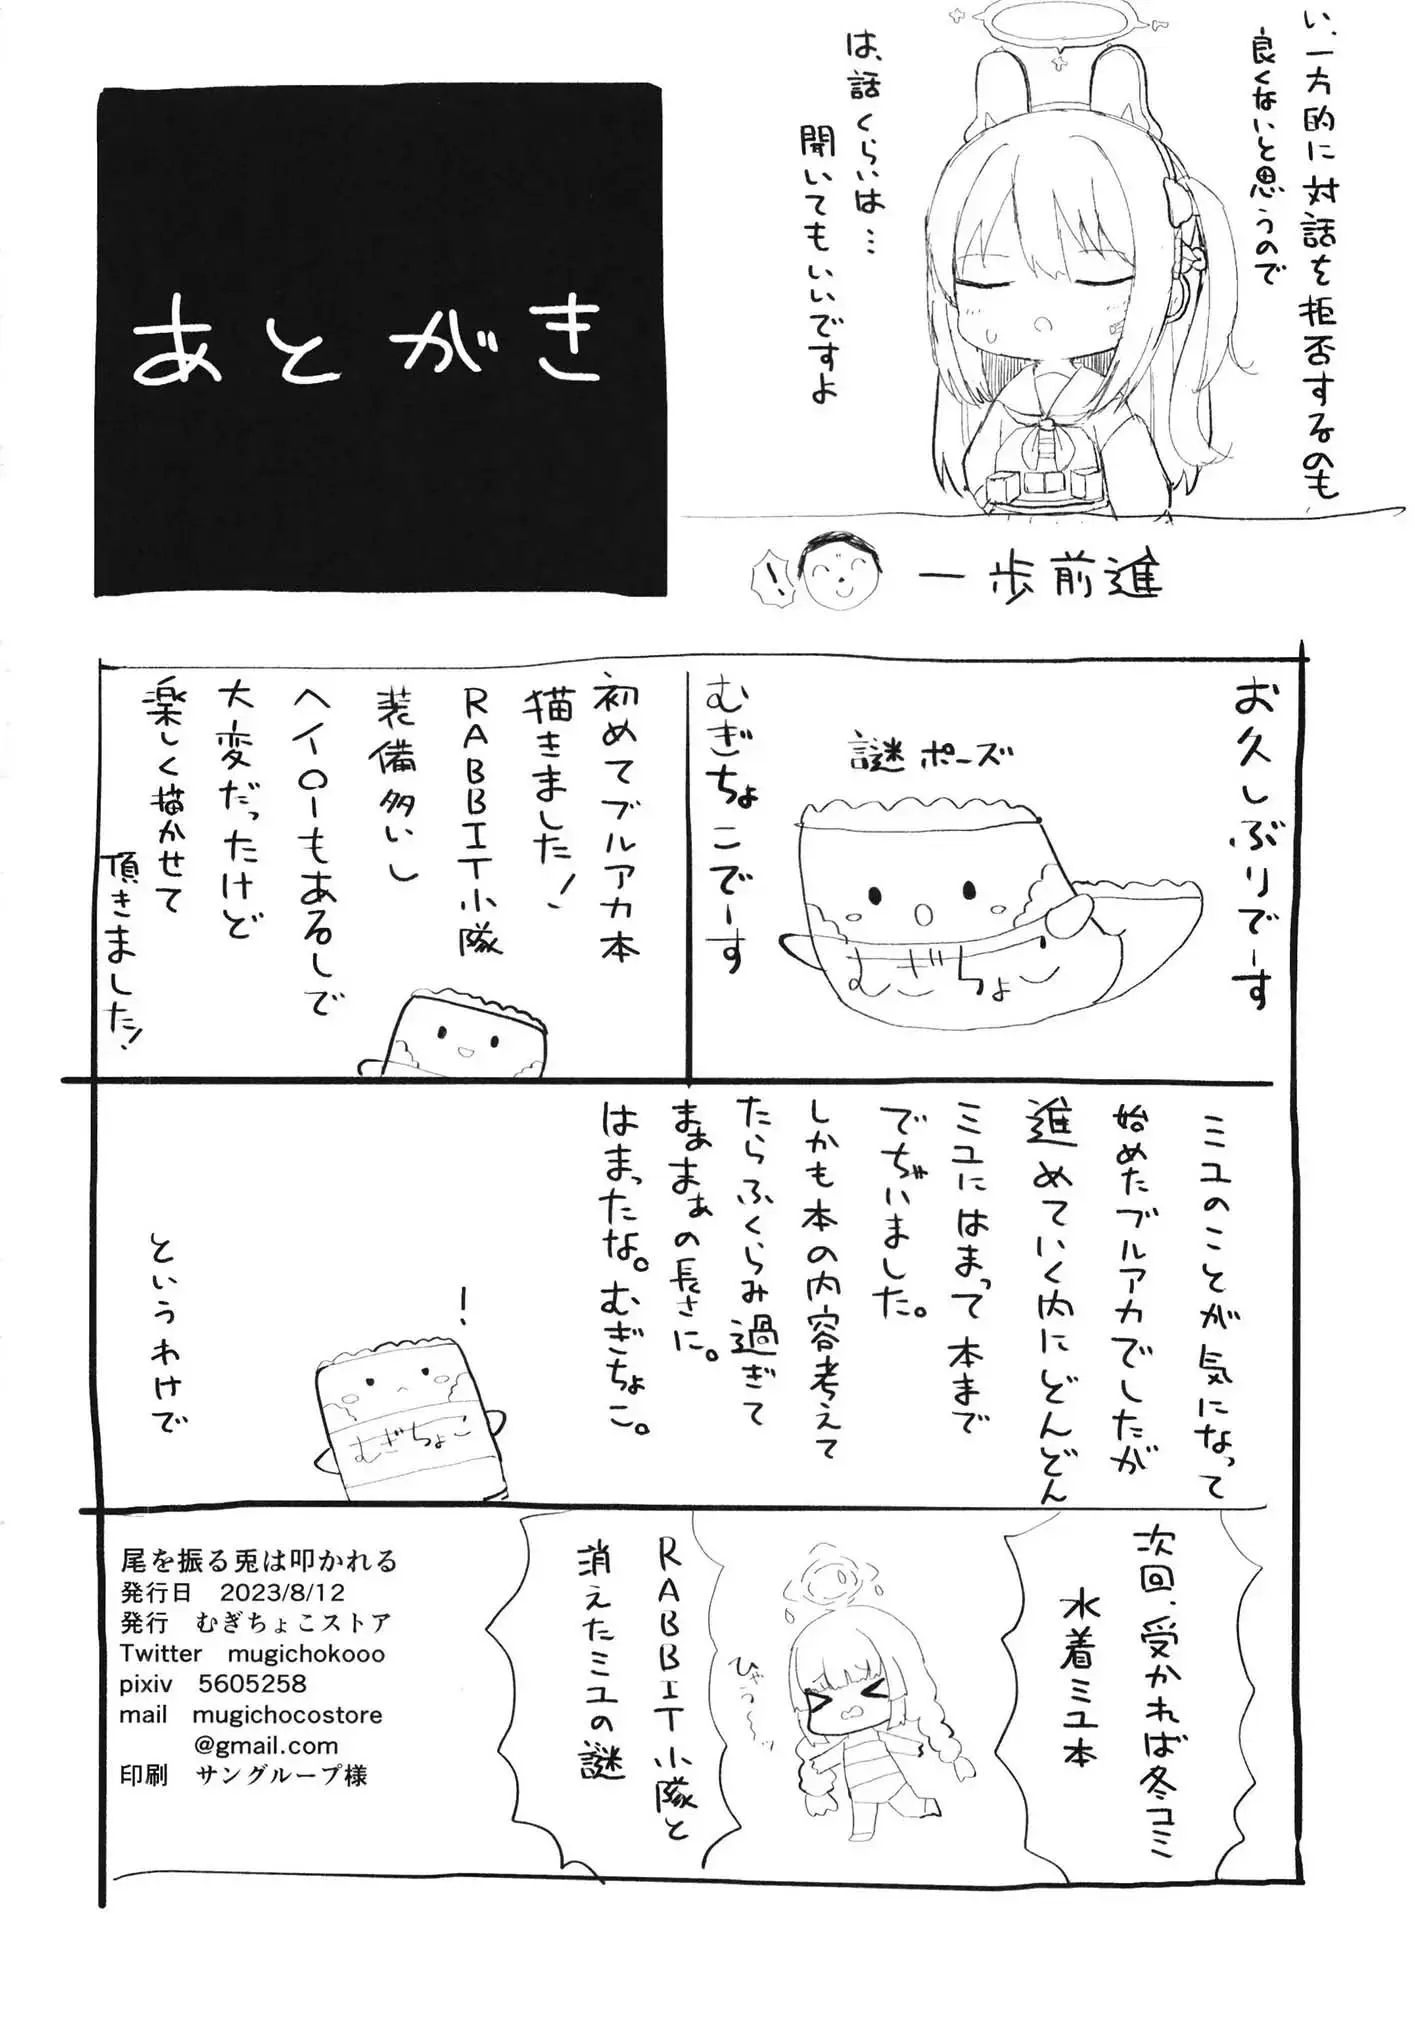 い、一方的に対話を拒否するのも
良くないと思うので
は、話くらいは…
聞いてもいいですよ
！
一歩前進
あとがき
お久しぶりでーす
謎ポーズ
むぎちょ
むぎちょこでーす
初めてブルアカ本
描きました！
RABBIT小隊
装備多いし
ヘイローもあるしで
大変だったけど
楽しく描かせて
頂きました！
ミユのことが気になって
始めたブルアカでしたが
進めていく内にどんどん
ミユにはまって本まで
でぢいました。
しかも本の内容考えて
たらふくらみ過ぎて
まぁまぁの長さに。
はまったな。むぎちょこ。
！
むぎちょこ
というわけで
次回、受かれば冬コミ
水着ミユ本
ひゃっ〜
RABBIT小隊と
消えたミユの謎
尾を振る兎は叩かれる
発行日　2023/8/12
発行　むぎちょこストア
Twitter　mugichokooo
pixiv　5605258
mail　mugichocostore
@gmail.com
印刷　サングループ様